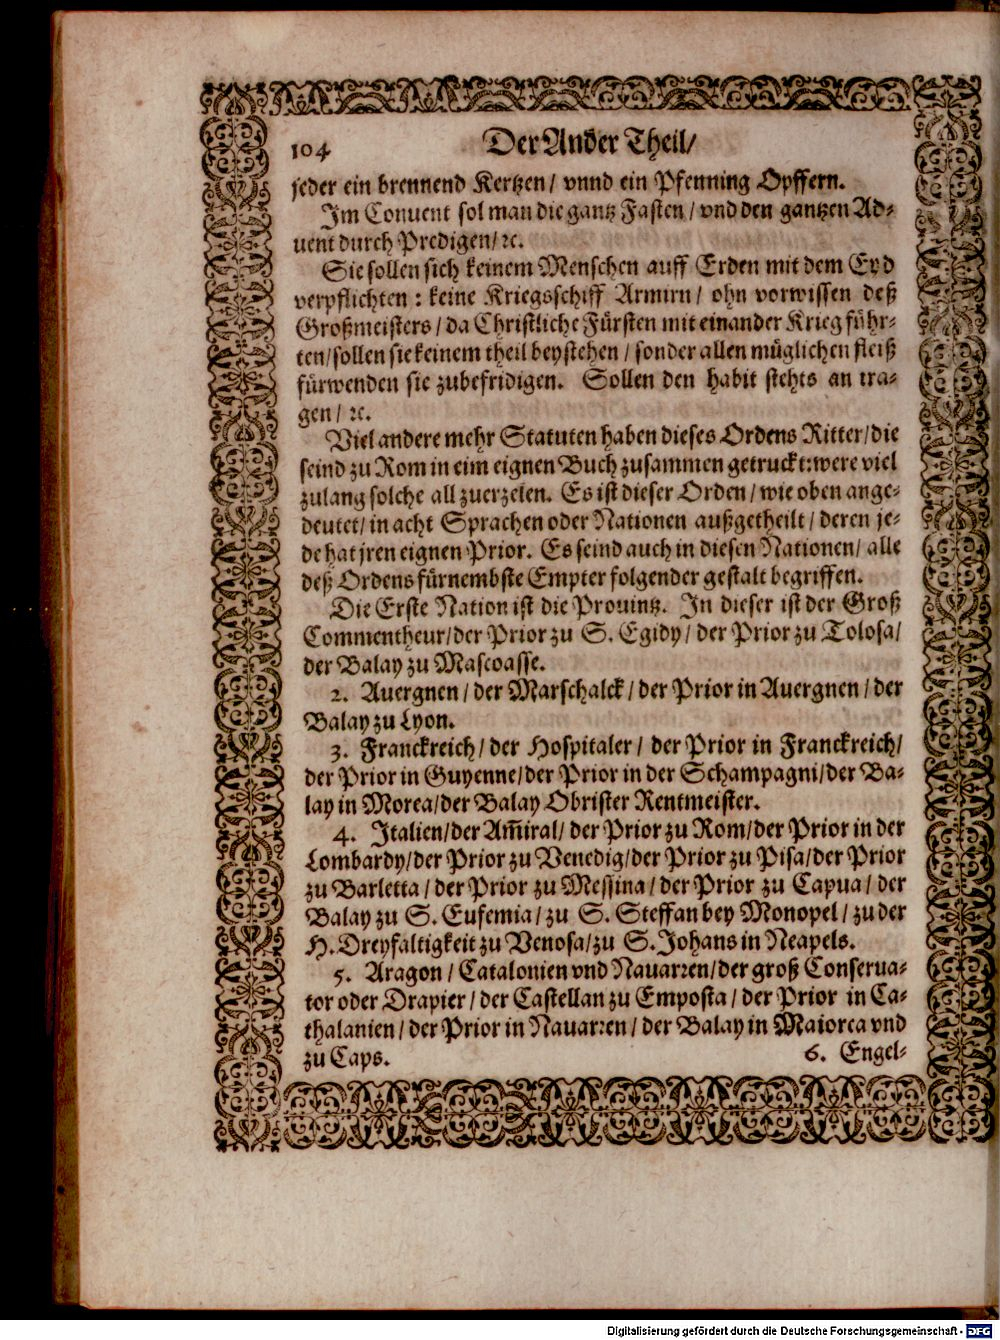 104 Der Ander Theil/
jeder ein brennend Kertzen/ vnnd ein Pfenning Opffern.
Im Conuent sol man die gantz Fasten/ vnd den gantzen Ad-
uent durch Predigen/ ꝛc.
Sie sollen sich keinem Menschen auff Erden mit dem Eyd
verpflichten: keine Kriegsschiff Armirn/ ohn vorwissen deß
Großmeisters/ da Christliche Fürsten mit einander Krieg führ-
ten/ sollen sie keinem theil beystehen/ sonder allen müglichen fleiß
fürwenden sie zubefridigen. Sollen den habit stehts an tra-
gen/ ꝛc.
Viel andere mehr Statuten haben dieses Ordens Ritter/ die
seind zu Rom in eim eignen Buch zusammen getruckt: were viel
zulang solche all zuerzelen. Es ist dieser Orden/ wie oben ange-
deutet/ in acht Sprachen oder Nationen außgetheilt/ deren je-
de hat jren eignen Prior. Es seind auch in diesen Nationen/ alle
deß Ordens fürnembste Empter folgender gestalt begriffen.
Die Erste Nation ist die Prouintz. In dieser ist der Groß
Commentheur/ der Prior zu S. Egidy/ der Prior zu Tolosa/
der Balay zu Mascoasse.
2. Auergnen/ der Marschalck/ der Prior in Auergnen/ der
Balay zu Lyon.
3. Franckreich/ der Hospitaler/ der Prior in Franckreich/
der Prior in Guyenne/ der Prior in der Schampagni/ der Ba-
lay in Morea/ der Balay Obrister Rentmeister.
4. Italien/ der Am̃iral/ der Prior zu Rom/ der Prior in der
Lombardy/ der Prior zu Venedig/ der Prior zu Pisa/ der Prior
zu Barletta/ der Prior zu Messina/ der Prior zu Capua/ der
Balay zu S. Eufemia/ zu S. Steffan bey Monopel/ zu der
H. Dreyfaltigkeit zu Venosa/ zu S. Johans in Neapels.
5. Aragon/ Catalonien vnd Nauarren/ der groß Conserua-
tor oder Drapier/ der Castellan zu Emposta/ der Prior in Ca-
thalanien/ der Prior in Nauarren/ der Balay in Maiorca vnd
zu Caps. 6. Engel-
Digitalisierung gefördert durch die Deutsche Forschungsgemeinschaft - DFG